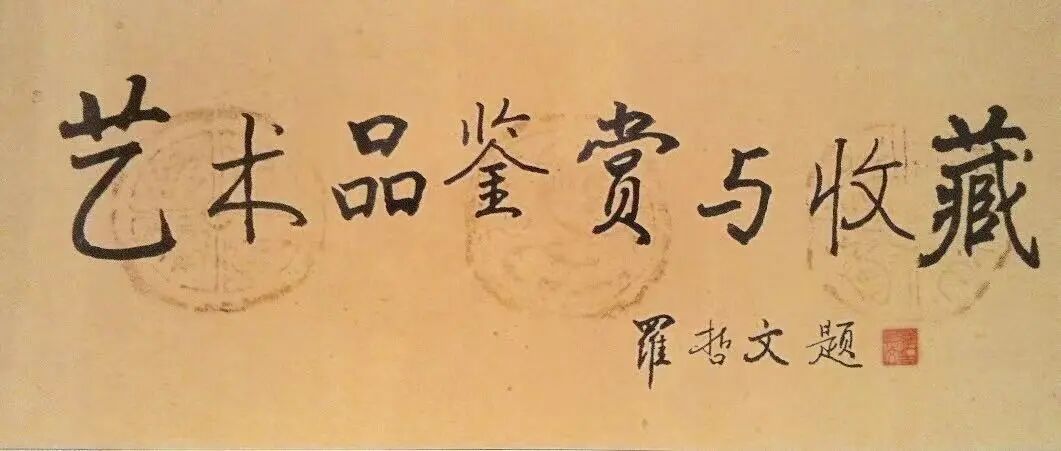 艺术品鉴赏与收藏
羅哲文题